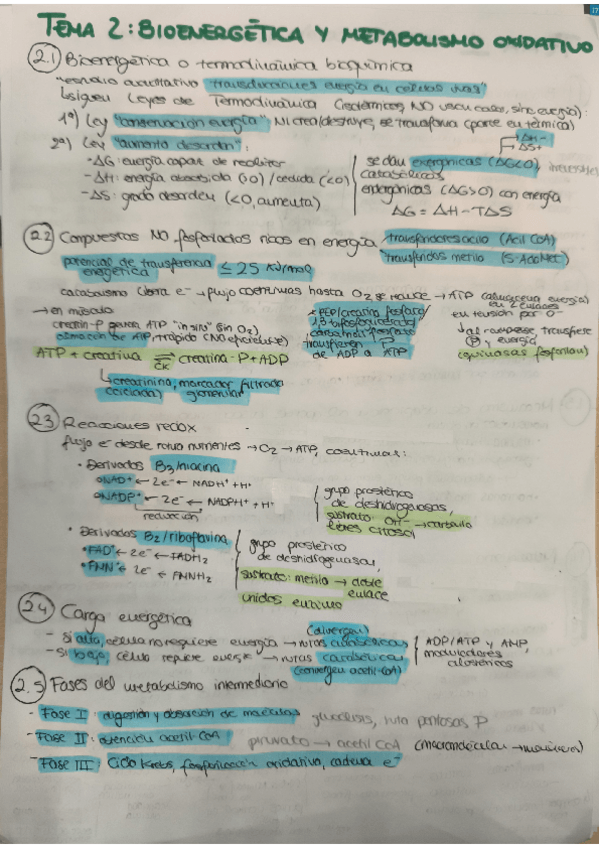 TEMA 2: BIOENERGÉTICA Y METABOLISMO OXIDATIVO
2.1 Bioenergética o termodinámica bioquímica
"estudio cuantitativo transducciones energía en células vivas"
siguen Leyes de Termodinámica (isotérmicos, NO usan calor, sino energía):
1ª) Ley "conservación energía" NI crea/destruye, se transforma (parte en térmica)
2ª) Ley "aumenta desorden":
ΔH-
ΔS+
- ΔG: energía capaz de realizar
- ΔH: energía absorbida (>0) / cedida (<0)
- ΔS: grado desorden (<0, aumenta)
se dan exergónicas (ΔG<0),
catabólicas
endergónicas (ΔG>0) con energía
ΔG = ΔH - TΔS
2.2 Compuestos NO fosforilados ricos en energía
transferidores acilo (Acil CoA)
transferidos metilo (S-AdoMet)
potencial de transferencia energética ≤ 25 KJ/mol
catabolismo libera e⁻ → flujo coenzimas hasta O₂ se reduce → ATP (almacena energía)
en 2 enlaces
en tensión por O⁻
→ en músculo
creatin-P genera ATP "in situ" (sin O₂)
ATP, rápido (NO eficiente)
* PEP/creatina fosfato/
1,3 bifosfoglicerato/
carbamoil fosfato
transfieren Ⓟ
de ADP a ATP
al romperse, transfiere
Ⓟ y energía
(quinasas fosforilan)
ATP + creatina ⇌ creatina-P + ADP
CK
creatinina, marcador filtrado
(ciclada) glomerular
2.3 Reacciones redox
flujo e⁻ desde rotura nutrientes → O₂ → ATP, coenzimas:
• Derivados B3/niacina
NAD⁺ ← 2e⁻ ← NADH⁺ + H⁺
NADP⁺ ← 2e⁻ ← NADPH⁺ + H⁺
reducción
grupo prostético
de deshidrogenasas,
sustrato: OH⁻ → carbonilo
libres citosol
• Derivados B2/riboflavina
• FAD⁺ ← 2e⁻ ← FADH₂
• FMN⁺ ← 2e⁻ ← FMNH₂
grupo prostético
de deshidrogenasas,
sustrato: metilo → doble
enlace
unidos enzima
2.4 Carga energética
(divergen)
- Si alta, célula no requiere energía → rutas anabólicas
- Si baja, célula requiere energía → rutas catabólicas
(convergen acetil-CoA)
ADP/ATP y AMP,
moduladores
alostéricos
2.5 Fases del metabolismo intermediario
- Fase I: digestión y absorción de moléculas glucólisis, ruta pentosas P
- Fase II: obtención acetil CoA piruvato → acetil CoA
- Fase III: Ciclo Krebs, fosforilación oxidativa, cadena e⁻